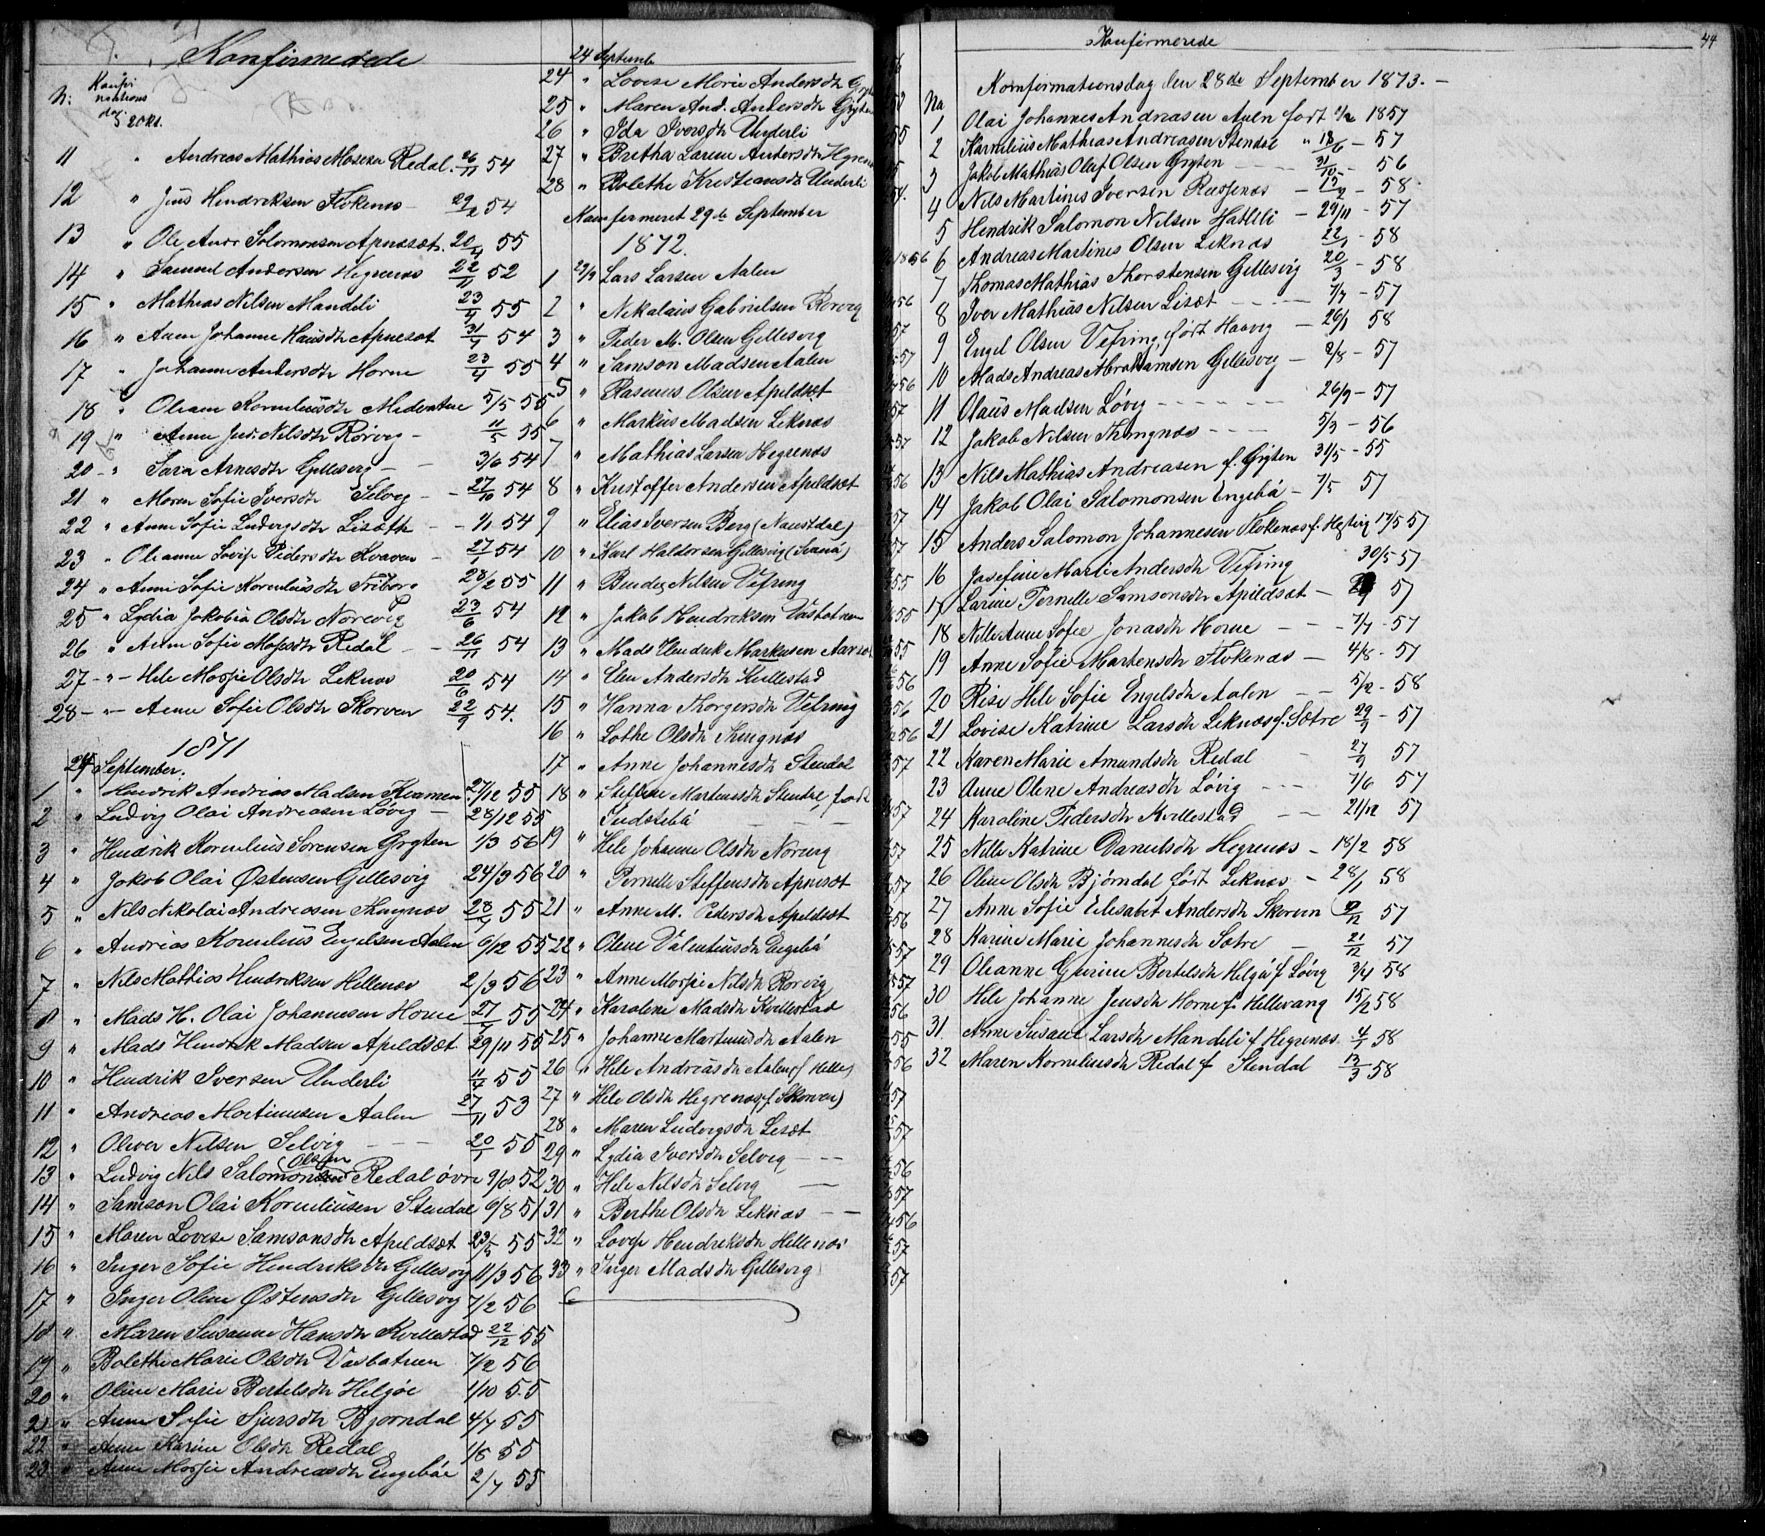 Konfirmerede
N:
Konfir
mations
dag
20 Okt.
11 " Andreas Mathias Mosesen Redal. 26/11 54
12 " Jens Hendriksen Flokenes 29/2 54
13 " Ole Anor Solomonsen Apnesæt. 20/4 55
14 " Samuel Andersen Hegrenes 22/11 52
15 " Mathias Nilsen Mandeli 23/4 55
16 " Anen Johanne Hansdtr Apnesæt 31/1 54
17 " Johanne Andersdtr Horne 23/4 55
18 " Oleane Korneliusdtr Midvatne 5/5 55
19 " Anne Nilsdtr Rörvig - 11/5 55
20 - " Sara Arnesdtr Gellesvig - 3/6 54
21 " Maren Sofie Iversdtr Selvig - 27/10 54
22 " Anne Sofie Ludvigsdtr Lisæth - 1/1 54
23 " Oleanne Lovise Pedersdtr Kvaven - 27/1 54
24 " Anne Sofie Korneliusdtr 28/2 55
25 " Lydia Jakobia Olsdtr Norevig 23/6 54
26 " Anne Sofie Mosesdtr Redal - 26/11 54
27 - " - Hele Marsie Olsdtr Leknes 20/6 54
28 - " - Anne Sofie Olsdtr Skorven 22/1 54.
1871
24 September.
1 " Hendrik Andreas Madsen Kvamen 27/12 55
2 " Ludvig Olai Andreasen Lövig - 28/12 55
3 " Hendrik Kornelius Sörensen Gryten 1/3 56
4 " Jakob Olai Östensen Gellesvig 24/3 56
5 " Nils Nikolai Andreasen Thingnes 28/1 55
6 " Andreas Kornelius Engelsen Aalen 6/12 55
7 " Nils Mathias Hendriksen Hellenes 2/3 56
8 " Mads H. Olai Johannesen Horne 27/7 55
9 " Mads Hendrik Madsen Apeldsæt 29/11 55
10 " Hendrik Iversen Underli 11/4 55
11 " Andreas Martinusen Aalen 27/11 53
12 " Oliver Nilsen Selvig - - - 20/1 55
13 " Ludvig Nils Salomonsen Olsen Redal övre 9/8 52
14 " Samson Olai Korneliusen Stendal 6/8 51
15 " Maren Lovise Samsonsdtr Apeldsæt 23/5 55
16 " Inger Sofie Hendriksdtr Gellesvig 11/3 56
17 " Inger Oline Östensdtr Gellesvig 7/2 56
18 " Maren Susanne Hansdtr Kvillestad 22/12 55
19 " Bolethe Marie Olsdtr Vasbotnen 7/2 56
20 " Oline Marie Bertelsdtr Helgöe 1/10 55
21 " Anne Sofie Sjursdtr Bjorndal 4/7 55
22 " Anne Karine Olsdtr Redal 1/5 55
23 " Anne Marsie Andreasdtr Engeböe 2/7 55
24 Septemb
24 " Lovise Marie Andersdtr Gryte
25 " Maren And. Andersdtr Gryten
26 " Ida Iversdtr Underli
27 " Bretha Larine Andersdtr Hegrenes
28 " Bolethe Kristiansdtr Underli
Konfermeret 29de September
1872.
1 29/9 Lars Larsen Aalen
2 " Nikolaus Gabrielsen Rorvig
3 " Peder M. Olsen Gellesvig
4 " Samson Madsen Aalen
5 " Rasmus Olsen Apeldsæt
6 " Markus Madsen Leknes
7 " Mathias Larsen Hegrenes
8 " Kristoffer Andersen Apeldsæt
9 " Elias Iversen Berg (Naustdal)
10 " Karl Haldorsen Gellesvig (Svanö)
11 " Bendix Nilsen Vefring
12 " Jakob Hendriksen Vasbotnen
13 " Mads Hendrik Markusen
14 " Elen Andersdtr Kvillestad
15 " Hanna Thorgersdtr Vefring
16 " Lothe Olsdtr Thingnes
17 " Anne Johannesdtr Stendal
18 " Steffine Martensdtr Stendal, födt
Indrebö - - -
19 " Hele Johanne Olsdtr Norvig
20 " Pernille Steffensdtr Apnesæt
21 " Anne M. Pedersdtr Apeldsæt
22 " Oline Valentinsdtr Engebö
23 " Anne Marsie Nilsdtr Rorvig
24 " Karoline Madsdtr Kvillestad
25 " Johanne Martinusdtr Aalen
26 " Hele Andreasdtr Aalen (f Helle)
27 " Hele Olsdtr Hegrenes (f. Skorven)
28 " Maren Ludvigsdtr Lisæt
29 " Lydia Iversdtr Selvig - - -
30 " Hele Nilsdtr Selvig -
31 " Berthe Olsdtr Leknes - -
32 " Lovise Hendriksdtr Hellenes
33 " Inger Madsdtr Gellesvig
Konfirmerede
44
Konformationsdag den 28de September 1873. -
No
1 Olai Johannes Andreasen Aalen födt 1/2 1857
2 Kornelius Mathias Andreasen Stendal " 18/6 - 57
3 Jakob Mathias Olaf Olsen Gryten - - 31/10 - 56
4 Nils Martines Iversen - 13/2 - 58
5 Hendrik Salomon Nilsen Hatleli - 29/11 - 57
6 Andreas Martines Olsen Leknes 22/1 - 58
7 Thomas Mathias Thorstensen Gellesvig 20/3 - 58
8 Iver Mathias Nilsen Lisæt - - - 7/7 - 57
9 Engel Olsen Vefring, födt Haavig - 26/1 58
10 Mads Andreas Abrahamsen Gellesvig - 2/8 - 57
11 Olaus Madsen Lövig - - - - 26/9 - 57
12 Jakob Nilsen Thingnes - - - 5/3 - 56
13 Nils Mathias Andreasen f. Gryten 31/5 - 55
14 Jakob Olai Salomonsen Engebö - 7/5 57
15 Anders Salomon Johannesen Flokenes f. 17/5 57
16 Josefine Marie Andersdtr Vefring 30/5 57
17 Larine Pernille Samsonsdtr Apeldsæt - 57
18 Nille Anne Sofie Jonasdtr Horne - - - 7/7 - 57
19 Anne Sofie Martensdtr Flokenes - 4/8 - 57
20 Rise Hele Sofie Engelsdtr Aalen - - 5/2 - 58
21 Lovise Katrine Larsdtr Leknes f. Sætre 29/9 - 57
22 Karen Marie Amundsdtr Redal - 27/9 57
23 Anne Olene Andreasdtr Lövig - - - 7/6 57
24 Karoline Pedersdtr Kvillestad - - 21/12 57
25 Nille Katrine Danielsdtr Hegrenes - 18/2 58
26 Oline Olsdtr Björndal födt Leknes - 28/1 58
27 Anne Sofie Elisabet Andersdtr Skorven 57
28 Karine Marie Johannesdtr Sætre - 21/12 57
29 Oleanne Gurine Bertelsdtr Helgö f Lövig 3/4 58
30 Hele Johanne Jensdtr Horne f. Hellevang 15/2 58
31. Anne Susane Larsdtr Mandeli f Hegrenes. 4/1 58
32 Maren Korneliusdtr Redal f Stendal 13/3 58